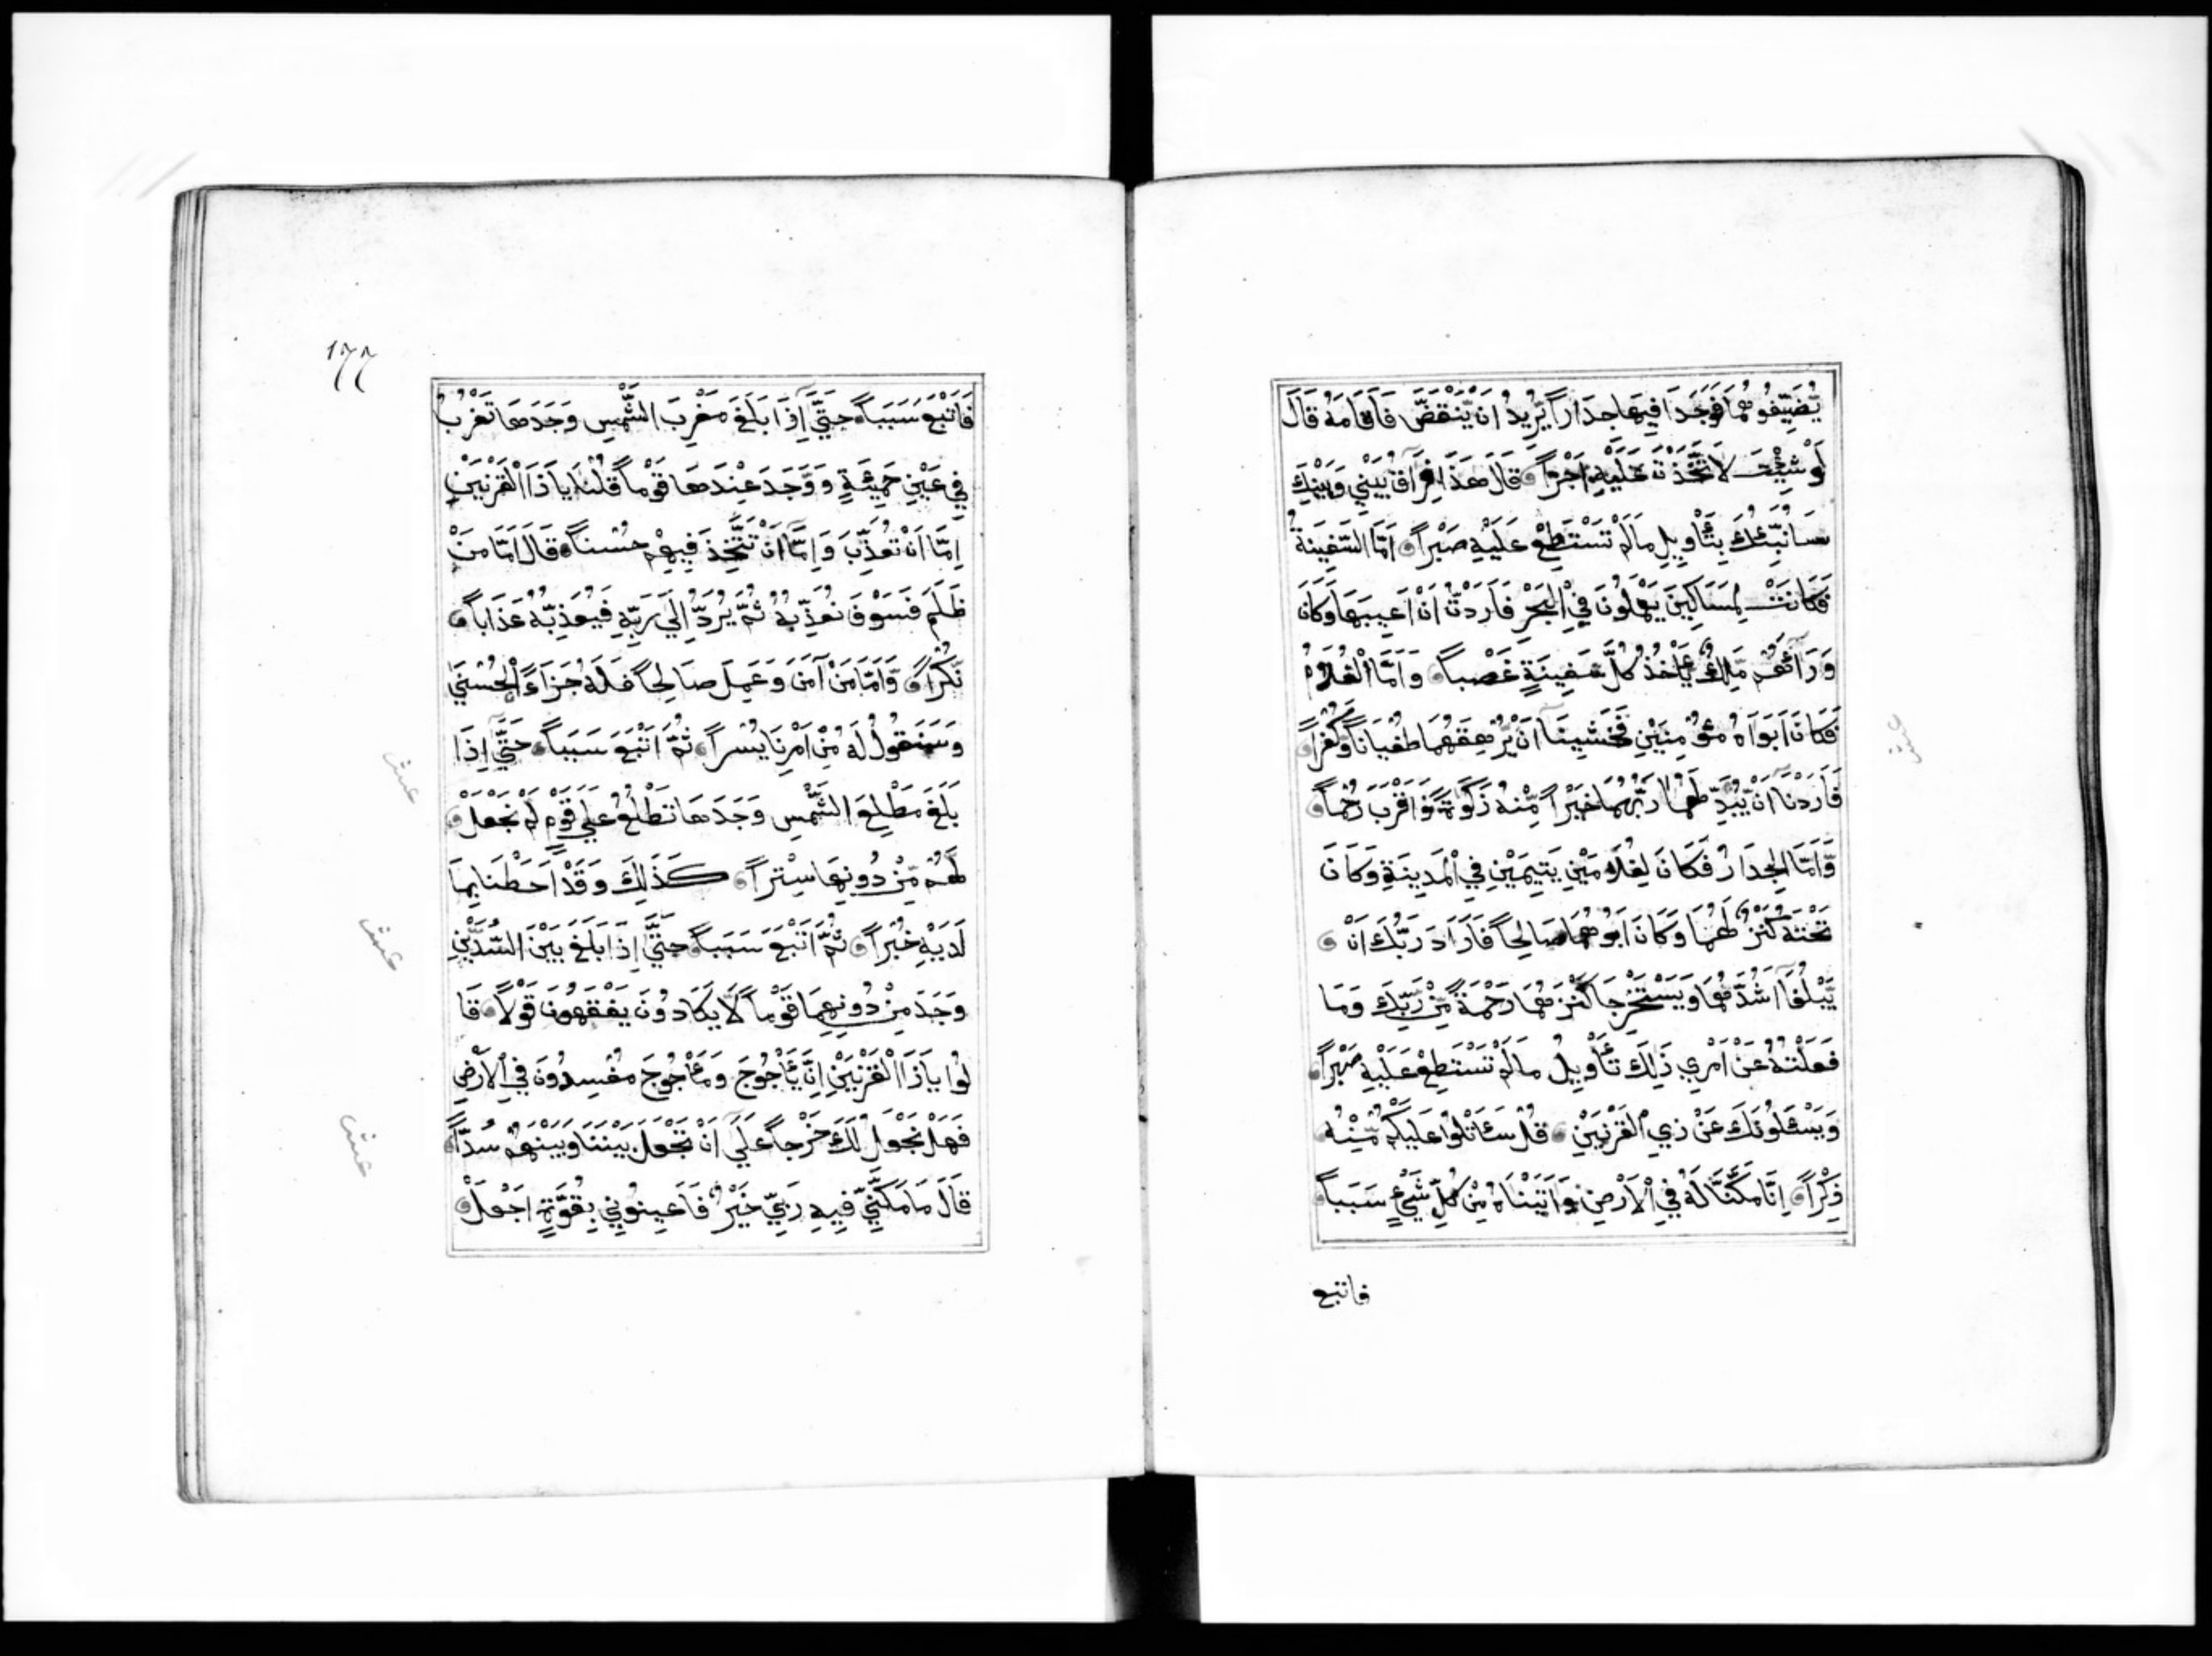 يُّضَيِّفُوهُمَا فَوَجَدَا فِيهَا جِدَاراً يُّرِيدُ اَنْ يَّنْقَضَّ فَاَقَامَهُ قَالَ
لَوْ شِئْتَ لَاتَّخَذْتَ عَلَيْهِ اَجْراً قَالَ هَذَا فِرَاقُ بَيْنِي وَبَيْنِكَ
سَاُنَبِّئُكَ بِتَأْوِيلِ مَالَمْ تَسْتَطِعْ عَلَيْهِ صَبْراً اَمَّا السَّفِينَةُ
فَكَانَتْ لِمَسَاكِينَ يَعْمَلُونَ فِي الْبَحْرِ فَاَرَدْتُّ اَنْ اَعِيبَهَا وَكَانَ
وَرَآئَهُمْ مَّلِكٌ يَأْخُذُ كُلَّ سَفِينَةٍ غَصْباً وَاَمَّا الْغُلَامُ
فَكَانَ اَبَوَاهُ مُؤْمِنَيْنِ فَخَشِينَآ اَنْ يُّرْهِقَهُمَا طُغْيَاناً وَّكُفْراً
فَاَرَدْنَآ اَنْ يُّبَدِّلَهُمَا رَبُّهُمَا خَيْراً مِّنْهُ زَكَوٰةً وَّاَقْرَبَ رُحْماً
وَّاَمَّا الْجِدَارُ فَكَانَ لِغُلَامَيْنِ يَتِيمَيْنِ فِي الْمَدِينَةِ وَكَانَ
تَحْتَهُ كَنْزٌ لَّهُمَا وَكَانَ اَبُوهُمَا صَالِحاً فَاَرَادَ رَبُّكَ اَنْ
يَّبْلُغَآ اَشُدَّهُمَا وَيَسْتَخْرِجَا كَنْزَهُمَا رَحْمَةً مِّنْ رَّبِّكَ وَمَا
فَعَلْتُهُ عَنْ اَمْرِي ذَلِكَ تَأْوِيلُ مَالَمْ تَسْتَطِعْ عَلَيْهِ صَبْراً
وَيَسْئَلُونَكَ عَنْ ذِي الْقَرْنَيْنِ قُلْ سَئَاتْلُوا عَلَيْكُمْ مِّنْهُ
ذِكْراً اِنَّا مَكَّنَّا لَهُ فِي الْاَرْضِ وَاَتَيْنَاهُ مِنْ كُلِّ شَيْءٍ سَبَباً
فاتبع
١٧٧
فَاَتْبَعَ سَبَباً حَتَّى اِذَا بَلَغَ مَغْرِبَ الشَّمْسِ وَجَدَهَا تَغْرُبُ
فِي عَيْنٍ حَمِئَةٍ وَوَجَدَ عِنْدَهَا قَوْماً قُلْنَا يَاذَا الْقَرْنَيْنِ
اِمَّا اَنْ تُعَذِّبَ وَاِمَّا اَنْ تَتَّخِذَ فِيهِمْ حُسْناً قَالَ اَمَّا مَنْ
ظَلَمَ فَسَوْفَ نُعَذِّبُهُ ثُمَّ يُرَدُّ اِلَى رَبِّهِ فَيُعَذِّبُهُ عَذَاباً
نُّكْراً وَّاَمَّا مَنْ آمَنَ وَعَمِلَ صَالِحاً فَلَهُ جَزَاءً الْحُسْنَى
وَسَنَقُولُ لَهُ مِنْ اَمْرِنَا يُسْراً ثُمَّ اَتْبَعَ سَبَباً حَتَّى اِذَا
بَلَغَ مَطْلِعَ الشَّمْسِ وَجَدَهَا تَطْلُعُ عَلَى قَوْمٍ لَمْ نَجْعَلْ
لَّهُمْ مِّنْ دُونِهَا سِتْراً كَذَلِكَ وَقَدْ اَحَطْنَا بِمَا
لَدَيْهِ خُبْراً ثُمَّ اَتْبَعَ سَبَباً حَتَّى اِذَا بَلَغَ بَيْنَ السُّدَّيْنِ
وَجَدَ مِنْ دُونِهِمَا قَوْماً لَّا يَكَادُونَ يَفْقَهُونَ قَوْلاً قَا
لُوا يَاذَا الْقَرْنَيْنِ اِنَّ يَأْجُوجَ وَمَأْجُوجَ مُفْسِدُونَ فِي الْاَرْضِ
فَهَلْ نَجْعَلُ لَكَ خَرْجاً عَلَى اَنْ تَجْعَلَ بَيْنَنَا وَبَيْنَهُمْ سُدّاً
قَالَ مَا مَكَّنِّي فِيهِ رَبِّي خَيْرٌ فَاَعِينُونِي بِقُوَّةٍ اَجْعَلْ